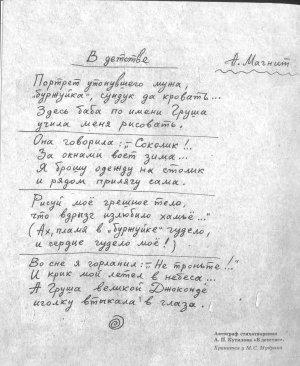 В детстве
А. Магнит
Портрет утонувшего мужа,
„буржуйка“, сундук да кровать...
Здесь баба по имени Груша
учила меня рисовать.
Она говорила: – Соколик!..
За окнами воет зима...
Я брошу одежду на столик
и рядом прилягу сама.
Рисуй моё грешное тело,
что вдрызг излюбило хамьё..."
(Ах, пламя в „буржуйке“ гудело,
и сердце гудело моё!)
Во сне я горланил: – Не троньте!.."
И крик мой летел в небеса...
А Груша великой Джоконде
иголку втыкала в глаза.
Автограф стихотворения
А. П. Кутилова «В детстве».
Хранится у М. С.